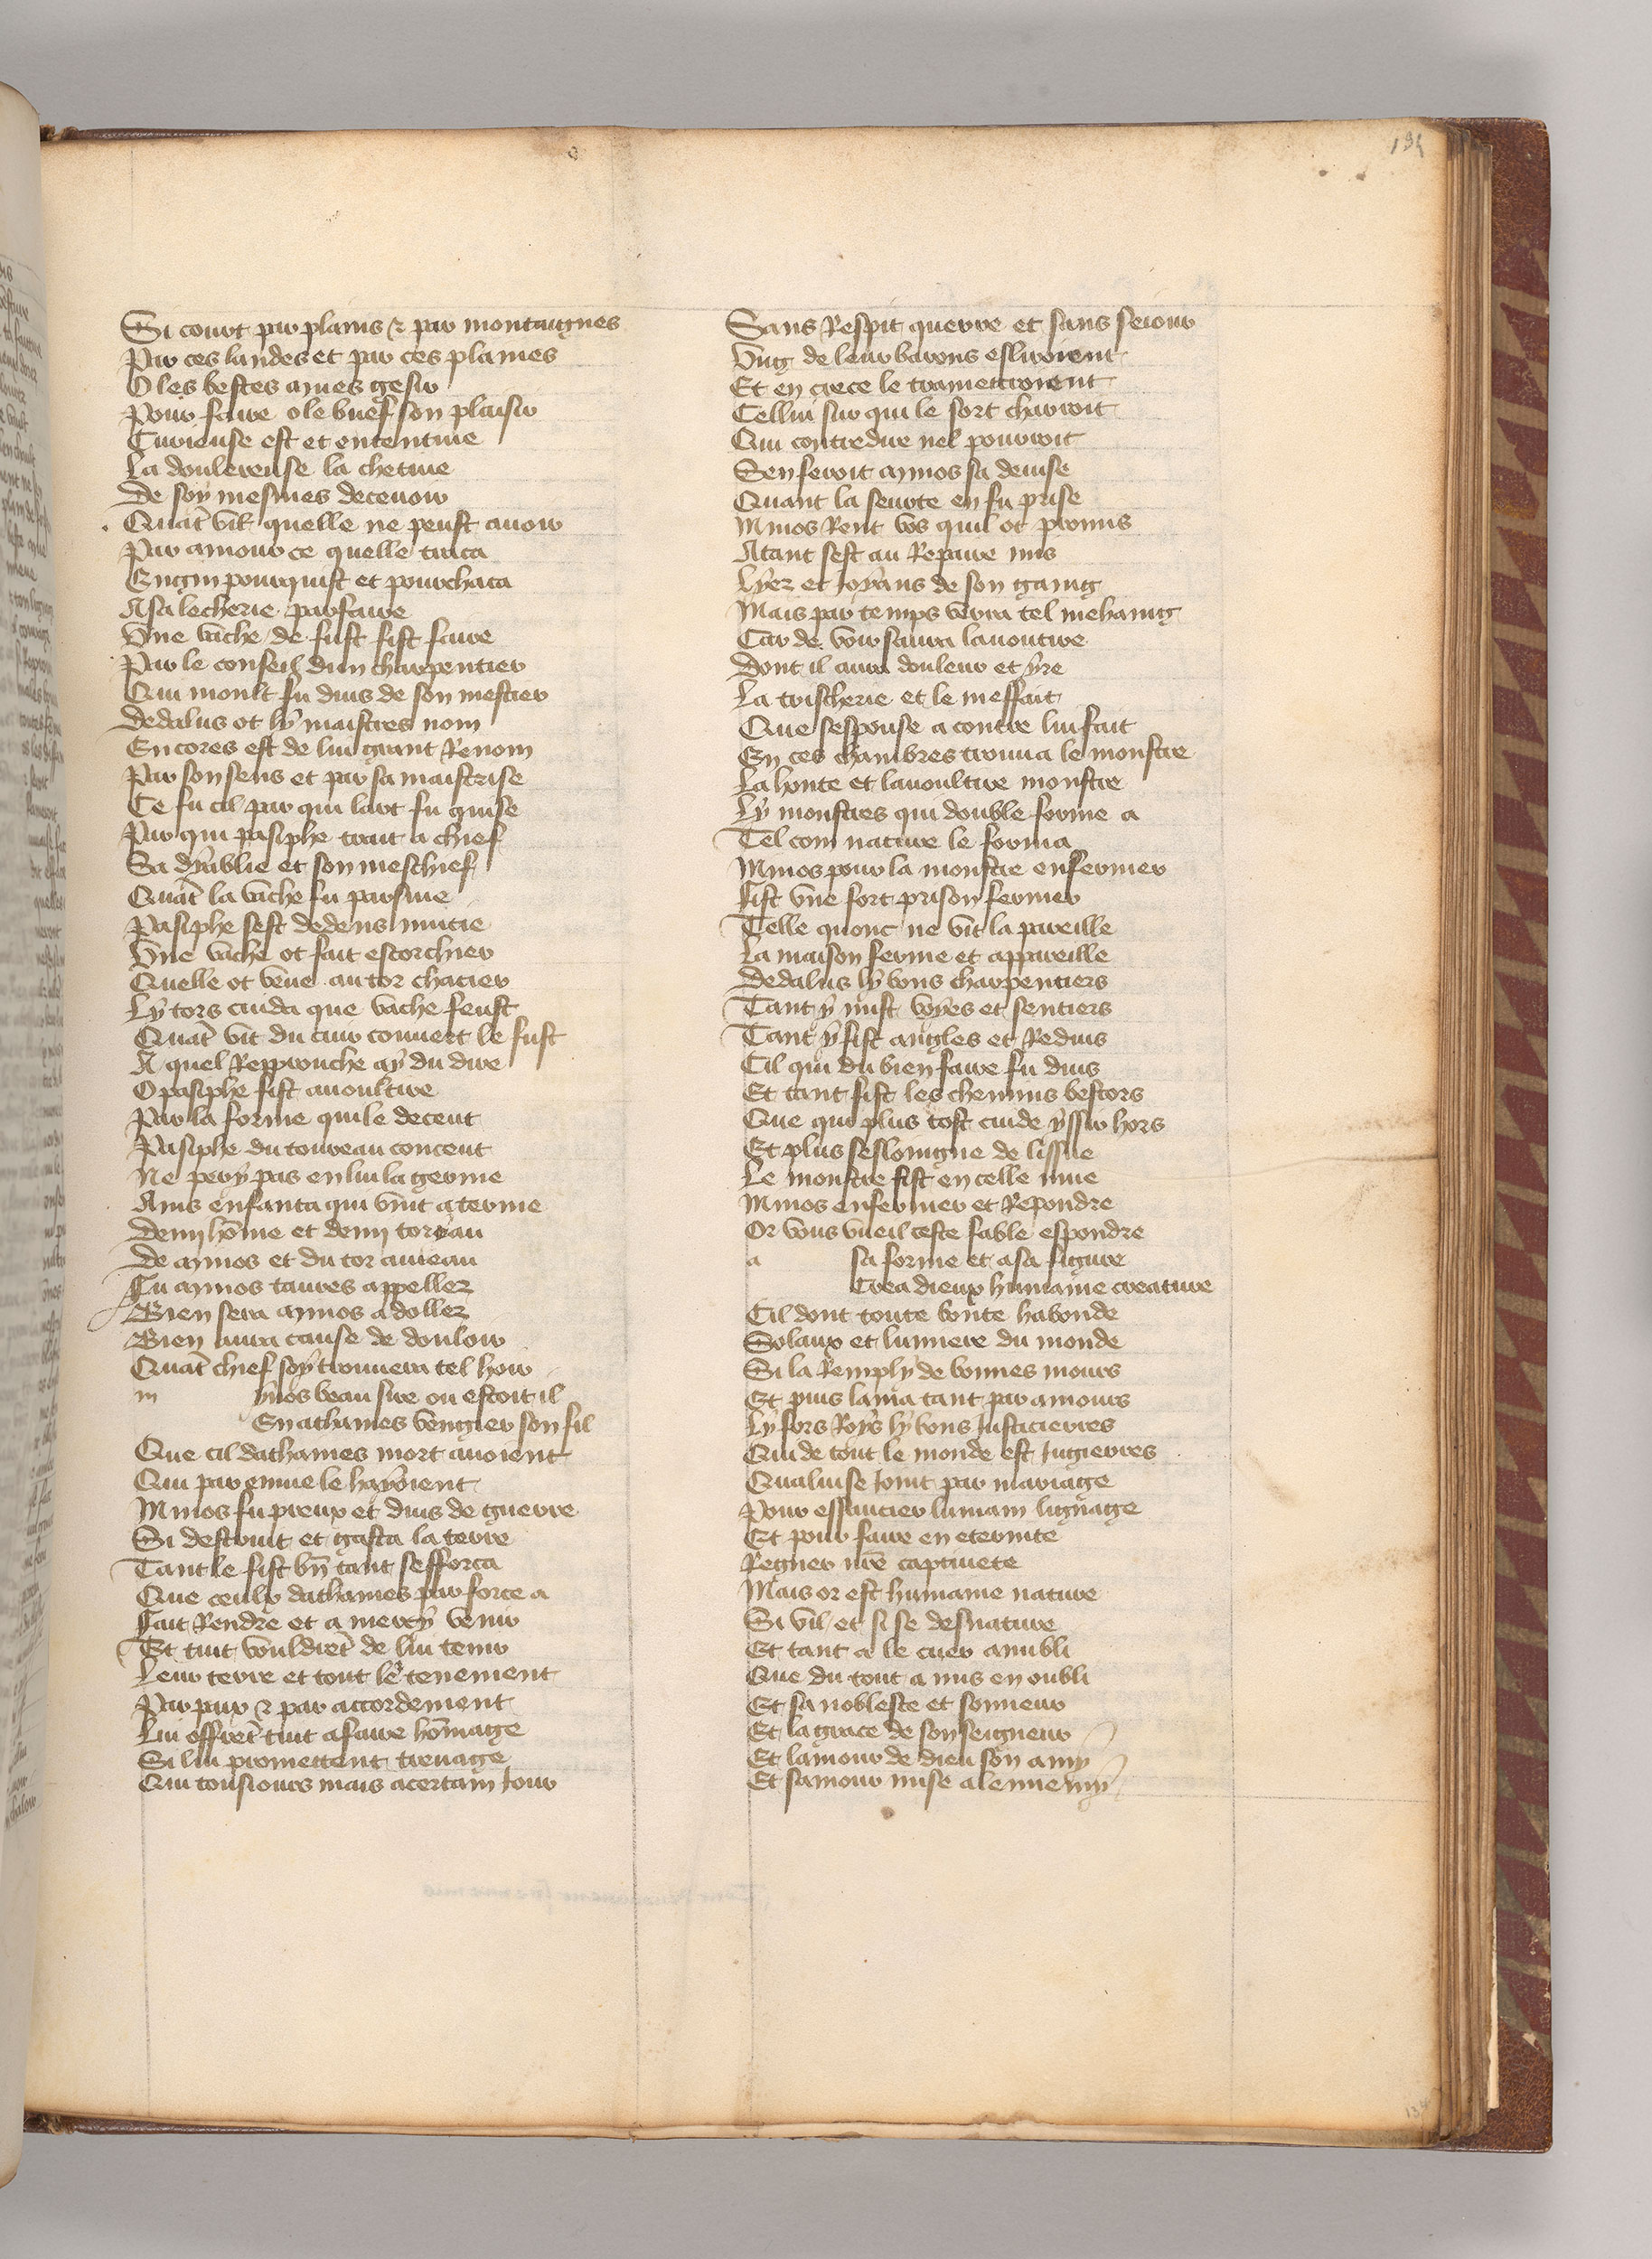 134
Si court par plains & par montaignes
Par ces landes et par ces plaines
O les bestes ames gesir
Pour faire o le buef son plaisir
Curieuse est et ententiue
La doulereuse la chetiue
De soy mesmes deceuoir
Quat vit quelle ne peust auoir
Par amour ce quelle traca
Engin pourquist et pourchaca
A sa lecherie parfaire
Vne vache de fust fist faire
Par le conseil dun charpentier
Qui moult fu duis de son mestier
Dedalus ot ly maistres nom
Encores est de lui grant Renom
Par son sens et par sa maistrise
Ce fu cil par qui lart fu quise
Par qui pasiphe trait a chief
Sa dyablie et son meschief
Quat la vache fu parfuie
Pasiphe sest dedens mucie
Vne vache ot fait escorchier
Quelle ot veue au tor chacier
Ly tors cuida que vache feust
Quat vit du cuir couuert le fust
A quel Repprouche ay du dire
O pasiphe fist auoultire
Par la forme qui le deceut
Pasiphe du toureau conceut
Ne pery pas en lui la germe
Ains enfanta qui vint a terme
Demy home et demy toreau
De aymos et du tor aureau
Fu aymos taures appeller
Bien sera aymos a doller
Bien aura cause de doulour
Quat chief soy trouuera tel hoir
m ynos beau sire ou estoit il
En athaines vengier son fil
Que cil dathaines mort auoient
Qui par enuie le hayoient
Minos fu preux et duis de guerre
Si destruit et gasta la terre
Tant le fist bn tant sefforca
Que ceulx dathaines par force a
Fait Rendre et a mercy venir
Et tuit vouldret de lui tenir
Leur terre et tout le tenement
Par paix & par accordement
Lui offret tuit a faire homage
Si lui promettent treuage
Qui tousiours mais a certain Jour
Sans Respit querre et sans seiour
Vng de leur barons esliroient
Et en crece le trametteroient
Cellui sur qui le sort charroit
Qui contredire nel pourroit
Sen feroit aymos sa deuise
Quant la seurte en fu prise
Minos Rent vos quil ot promis
Atant sest au Repaire mis
Lyez et Joyans de son gaing
Mais par temps verra tel mehaing
Car de voir saura lauoutire
Dont il aura douleur et yre
La tricherie et le meffait
Que sespouse a contre lui fait
En ces chambres trouua le monstre
La honte et lauoultire monstre
Ly monstres qui double forme a
Tel com nature le forma
Minos pour la monstre enfermer
Fist vne fort prison fermer
Telle quonc ne vit la pareille
La maison ferme et appareille
Dedalus ly bons charpentiers
Tant y mist voyes et sentiers
Tant y fist angles et Reduis
Cil qui du bien faire fu duis
Et tant fist les chemins bestors
Que qui plus tost cuide yssir hors
Et plus seslongne de lissue
Le monstre fist en celle mue
Minos enfermer et Repondre
Or vous vueil ceste fable espondre
a sa forme et a sa figure
Crea dieux humaine creature
Cil dont toute bonte habonde
Solaux et lumiere du monde
Si la Remply de bonnes mours
Et puis lama tant par amours
Ly fors Roys ly bons Justicierres
Qui de tout le monde est Jugierres
Qua lui se Joint par mariage
Pour essaucier lumain lignage
Et pour faire en eternite
Regner nre captiuete
Mais or est humaine nature
Si vil et si se desnature
Et tant a le cuer anubli
Que du tout a mis en oubli
Et sa noblesce et sonneur
Et la grace de son seigneur
Et lamour de dieu son amy
Et samour mise a lennemy